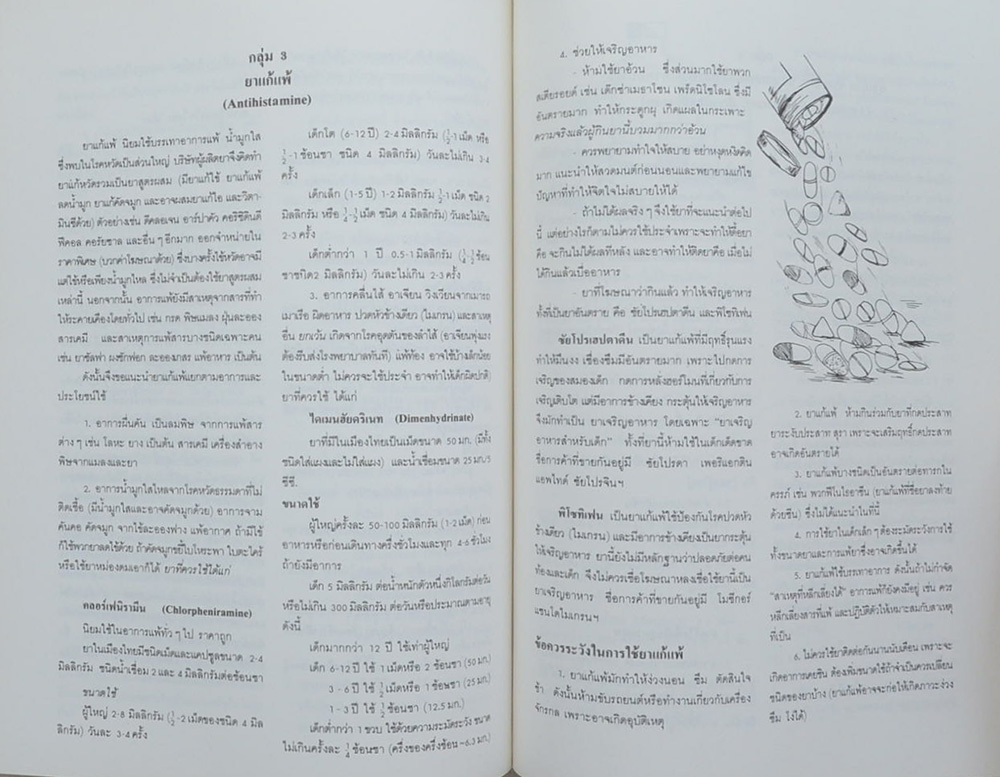 กลุ่ม 3
ยาแก้แพ้
(Antihistamine)
ยาแก้แพ้ นิยมใช้บรรเทาอาการแพ้ น้ำมูกใส
ซึ่งพบในโรคหวัดเป็นส่วนใหญ่ บริษัทผู้ผลิตยาจึงคิดทำ
ยาแก้หวัดรวมเป็นยาสูตรผสม (มียาแก้ไข้ ยาแก้แพ้
ลดน้ำมูก ยาแก้คัดจมูก และอาจผสมยาแก้ไอ และวิตา-
มินซีด้วย) ตัวอย่างเช่น ดีคลอเจน อาร์ปาคัว คอริซิดินดี
ฟีคอล คอรัยซาล และอื่น ๆ อีกมาก ออกจำหน่ายใน
ราคาพิเศษ (บวกค่าโฆษณาด้วย) ซึ่งบางครั้งไข้หวัดอาจมี
แต่ไข้หรือเพียงน้ำมูกไหล ซึ่งไม่จำเป็นต้องใช้ยาสูตรผสม
เหล่านี้ นอกจากนั้น อาการแพ้ยังมีสาเหตุจากสารที่ทำ
ให้ระคายเคืองโดยทั่วไป เช่น กรด พิษแมลง ฝุ่นละออง
สารเคมี และสาเหตุการแพ้สารบางชนิดเฉพาะคน
เช่น ยาซัลฟา ผงซักฟอก ละอองเกสร แพ้อาหาร เป็นต้น
ดังนั้นจึงขอแนะนำยาแก้แพ้แยกตามอาการและ
ประโยชน์ใช้
1. อาการผื่นคัน เป็นลมพิษ จากการแพ้สาร
ต่าง ๆ เช่น โลหะ ยาง เป็นต้น สารเคมี เครื่องสำอาง
พิษจากแมลงและยา
2. อาการน้ำมูกใสไหลจากโรคหวัดธรรมดาที่ไม่
ติดเชื้อ (มีน้ำมูกใสและอาจคัดจมูกด้วย) อาการจาม
คันคอ คัดจมูก จากไข้ละอองฟาง แพ้อากาศ ถ้ามีไข้
ก็ใช้พวกยาลดไข้ด้วย ถ้าคัดจมูกขยี้ใบโหระพา ใบตะไคร้
หรือใช้ยาหม่องดมเอาก็ได้ ยาที่ควรใช้ได้แก่
คลอร์เฟนิรามีน (Chlorpheniramine)
นิยมใช้ในอาการแพ้ทั่ว ๆ ไป ราคาถูก
ยาในเมืองไทยมีชนิดเม็ดและแคปซูลขนาด 2-4
มิลลิกรัม ชนิดน้ำเชื่อม 2 และ 4 มิลลิกรัมต่อช้อนชา
ขนาดใช้
ผู้ใหญ่ 2-8 มิลลิกรัม (½-2 เม็ดของชนิด 4 มิล
ลิกรัม) วันละ 3-4 ครั้ง
เด็กโต (6-12 ปี) 2-4 มิลลิกรัม (½-1 เม็ด หรือ
½-1 ช้อนชา ชนิด 4 มิลลิกรัม) วันละไม่เกิน 3-4
ครั้ง
เด็กเล็ก (1-5 ปี) 1-2 มิลลิกรัม ½-1 เม็ด ชนิด 2
มิลลิกรัม หรือ ¼-½ เม็ด ชนิด 4 มิลลิกรัม) วันละไม่เกิน
2-3 ครั้ง
เด็กต่ำกว่า 1 ปี 0.5-1 มิลลิกรัม (¼-½ ช้อน
ชาชนิด2 มิลลิกรัม) วันละไม่เกิน 2-3 ครั้ง
3. อาการคลื่นไส้ อาเจียน วิงเวียนจากเมารถ
เมาเรือ ผิดอาหาร ปวดหัวข้างเดียว (ไมเกรน) และสาเหตุ
อื่น ยกเว้น เกิดจากโรคอุดตันของลำไส้ (อาเจียนพุ่งแรง
ต้องรีบส่งโรงพยาบาลทันที) แพ้ท้อง อาจใช้บ้างเล็กน้อย
ในขนาดต่ำ ไม่ควรจะใช้ประจำ อาจทำให้เด็กผิดปกติ)
ยาที่ควรใช้ ได้แก่
ไดเมนฮัยดริเนท (Dimenhydrinate)
ยาที่มีในเมืองไทยเป็นเม็ดขนาด 50 มก. (มีทั้ง
ชนิดใส่แผงและไม่ใส่แผง) และน้ำเชื่อมขนาด 25 มก./5
ซีซี.
ขนาดใช้
ผู้ใหญ่ครั้งละ 50-100 มิลลิกรัม (1-2 เม็ด) ก่อน
อาหารหรือก่อนเดินทางครึ่งชั่วโมงและทุก 4-6 ชั่วโมง
ถ้ายังมีอาการ
เด็ก 5 มิลลิกรัม ต่อน้ำหนักตัวหนึ่งกิโลกรัมต่อวัน
หรือไม่เกิน 300 มิลลิกรัม ต่อวันหรือประมาณตามอายุ
ดังนี้
เด็กมากกว่า 12 ปี ใช้เท่าผู้ใหญ่
เด็ก 6-12 ปี ใช้ 1 เม็ดหรือ 2 ช้อนชา (50 มก.)
3-6 ปี ใช้ ½ เม็ดหรือ 1 ช้อนชา (25 มก.)
1-3 ปี ใช้ ½ ช้อนชา (12.5 มก.)
เด็กต่ำกว่า 1 ขวบ ใช้ด้วยความระมัดระวัง ขนาด
ไม่เกินครั้งละ ¼ ช้อนชา (ครึ่งของครึ่งช้อน-6.3 มก.)
4. ช่วยให้เจริญอาหาร
- ห้ามใช้ยาอ้วน ซึ่งส่วนมากใช้ยาพวก
สเตียรอยด์ เช่น เด็กซ่าเมธาโซน เพรัดนิโซโลน ซึ่งมี
อันตรายมาก ทำให้กระดูกผุ เกิดแผลในกระเพาะ
ความจริงแล้วผู้กินยานี้บวมมากกว่าอ้วน
- ควรพยายามทำใจให้สบาย อย่าหงุดหงิดคิด
มาก แนะนำให้สวดมนต์ก่อนนอนและพยายามแก้ไข
ปัญหาที่ทำให้จิตใจไม่สบายให้ได้
- ถ้าไม่ได้ผลจริง ๆ จึงใช้ยาที่จะแนะนำต่อไป
นี้ แต่อย่างไรก็ตามไม่ควรใช้ประจำเพราะจะทำให้ดื้อยา
คือ จะกินไม่ได้ผลทีหลัง และอาจทำให้ติดยาคือ เมื่อไม่
ได้กินแล้วเบื่ออาหาร
- ยาที่โฆษณาว่ากินแล้ว ทำให้เจริญอาหาร
ทั้งที่เป็นยาอันตราย คือ ซัยโปรเฮปตาดีน และพิโซทิเฟน
ซัยโปรเฮปตาดีน เป็นยาแก้แพ้ที่มีฤทธิ์รุนแรง
ทำให้มึนงง เซื่องซึมมีอันตรายมาก เพราะไปกดการ
เจริญของสมองเด็ก กดการหลั่งฮอร์โมนที่เกี่ยวกับการ
เจริญเติบโต แต่มีอาการข้างเคียง กระตุ้นให้เจริญอาหาร
จึงมักทำเป็น ยาเจริญอาหาร โดยเฉพาะ "ยาเจริญ
อาหารสำหรับเด็ก" ทั้งที่ยานี้ห้ามใช้ในเด็กเด็ดขาด
ชื่อการค้าที่ขายกันอยู่มี ซัยโปรตา เพอริแอกติน
แอพไทด์ ซัยโปรจินฯ
พิโซทิเฟน เป็นยาแก้แพ้ใช้ป้องกันโรคปวดหัว
ข้างเดียว (ไมเกรน) และมีอาการข้างเคียงเป็นยากระตุ้น
ให้เจริญอาหาร ยานี้ยังไม่มีหลักฐานว่าปลอดภัยต่อคน
ท้องและเด็ก จึงไม่ควรเชื่อโฆษณาหลงเชื่อใช้ยานี้เป็น
ยาเจริญอาหาร ชื่อการค้าที่ขายกันอยู่มี โมซีกอร์
แซนโดไมเกรนฯ
ข้อควรระวังในการใช้ยาแก้แพ้
1. ยาแก้แพ้มักทำให้ง่วงนอน ซึม ตัดสินใจ
ช้า ดังนั้นห้ามขับรถยนต์หรือทำงานเกี่ยวกับเครื่อง
จักรกล เพราะอาจเกิดอุบัติเหตุ
2. ยาแก้แพ้ ห้ามกินร่วมกับยาที่กดประสาท
ยาระงับประสาท สุรา เพราะจะเสริมฤทธิ์กดประสาท
อาจเกิดอันตรายได้
3. ยาแก้แพ้บางชนิดเป็นอันตรายต่อทารกใน
ครรภ์ เช่น พวกฟีโนไธอาซีน (ยาแก้แพ้ที่ชื่อยาลงท้าย
ด้วยซีน) ซึ่งไม่ได้แนะนำในที่นี้
4. การใช้ยาในเด็กเล็ก ๆ ต้องระมัดระวังการใช้
ทั้งขนาดยาและการแพ้ยาซึ่งอาจเกิดขึ้นได้
5. ยาแก้แพ้ใช้บรรเทาอาการ ดังนั้นถ้าไม่กำจัด
"สาเหตุที่หลีกเลี่ยงได้" อาการแพ้ก็ยังคงมีอยู่ เช่น ควร
หลีกเลี่ยงสารที่แพ้ และปฏิบัติตัวให้เหมาะสมกับสาเหตุ
ที่เป็น
6. ไม่ควรใช้ยาติดต่อกันนานนับเดือน เพราะจะ
เกิดอาการเคยชิน ต้องเพิ่มขนาดใช้ถ้าจำเป็นควรเปลี่ยน
ชนิดของยาบ้าง (ยาแก้แพ้อาจจะก่อให้เกิดภาวะง่วง
ซึม โง่ได้)